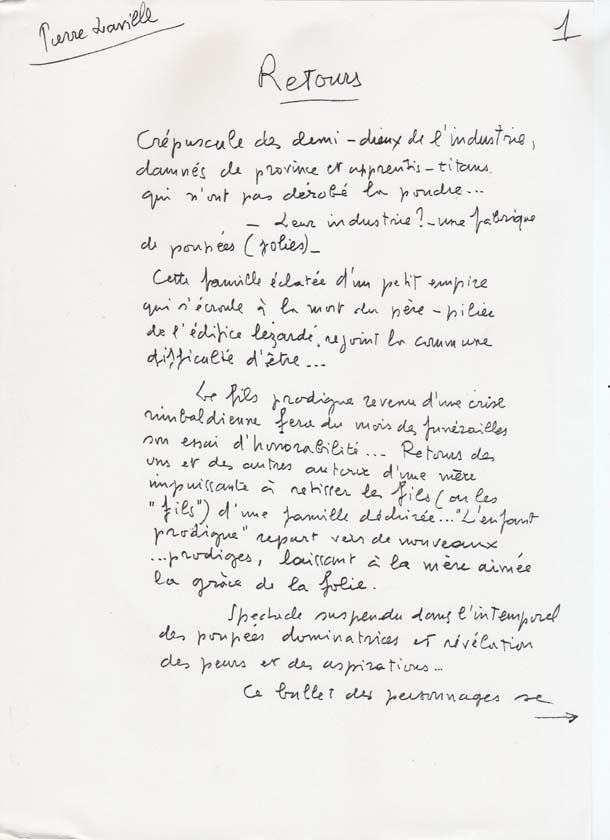 Pierre Laville
1
Retours
Crépuscule des demi-dieux de l'industrie,
damnés de province et apprentis-titans
qui n'ont pas dérobé la poudre...
— Leur industrie? - une fabrique
de poupées (jolies) -
Cette famille éclatée d'un petit empire
qui s'écroule à la mort du père-pilier
de l'édifice lézardé, rejoint la commune
difficulté d'être...
Le fils prodigue revenu d'une crise
rimbaldienne fera du mois des funérailles
son essai d'honorabilité... Retours des
uns et des autres autour d'une mère
impuissante à retisser les fils (ou les
"fils") d'une famille déchirée... "L'enfant
prodigue" repart vers de nouveaux
...prodiges, laissant à la mère aimée
la grâce de la folie.
Spectacle suspendu dans l'intemporel
des poupées dominatrices et révélation
des peurs et des aspirations...
Ce ballet des personnages se
→